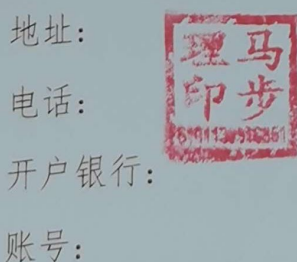 地址:
电话:
开户银行:
账号:
马步
理印